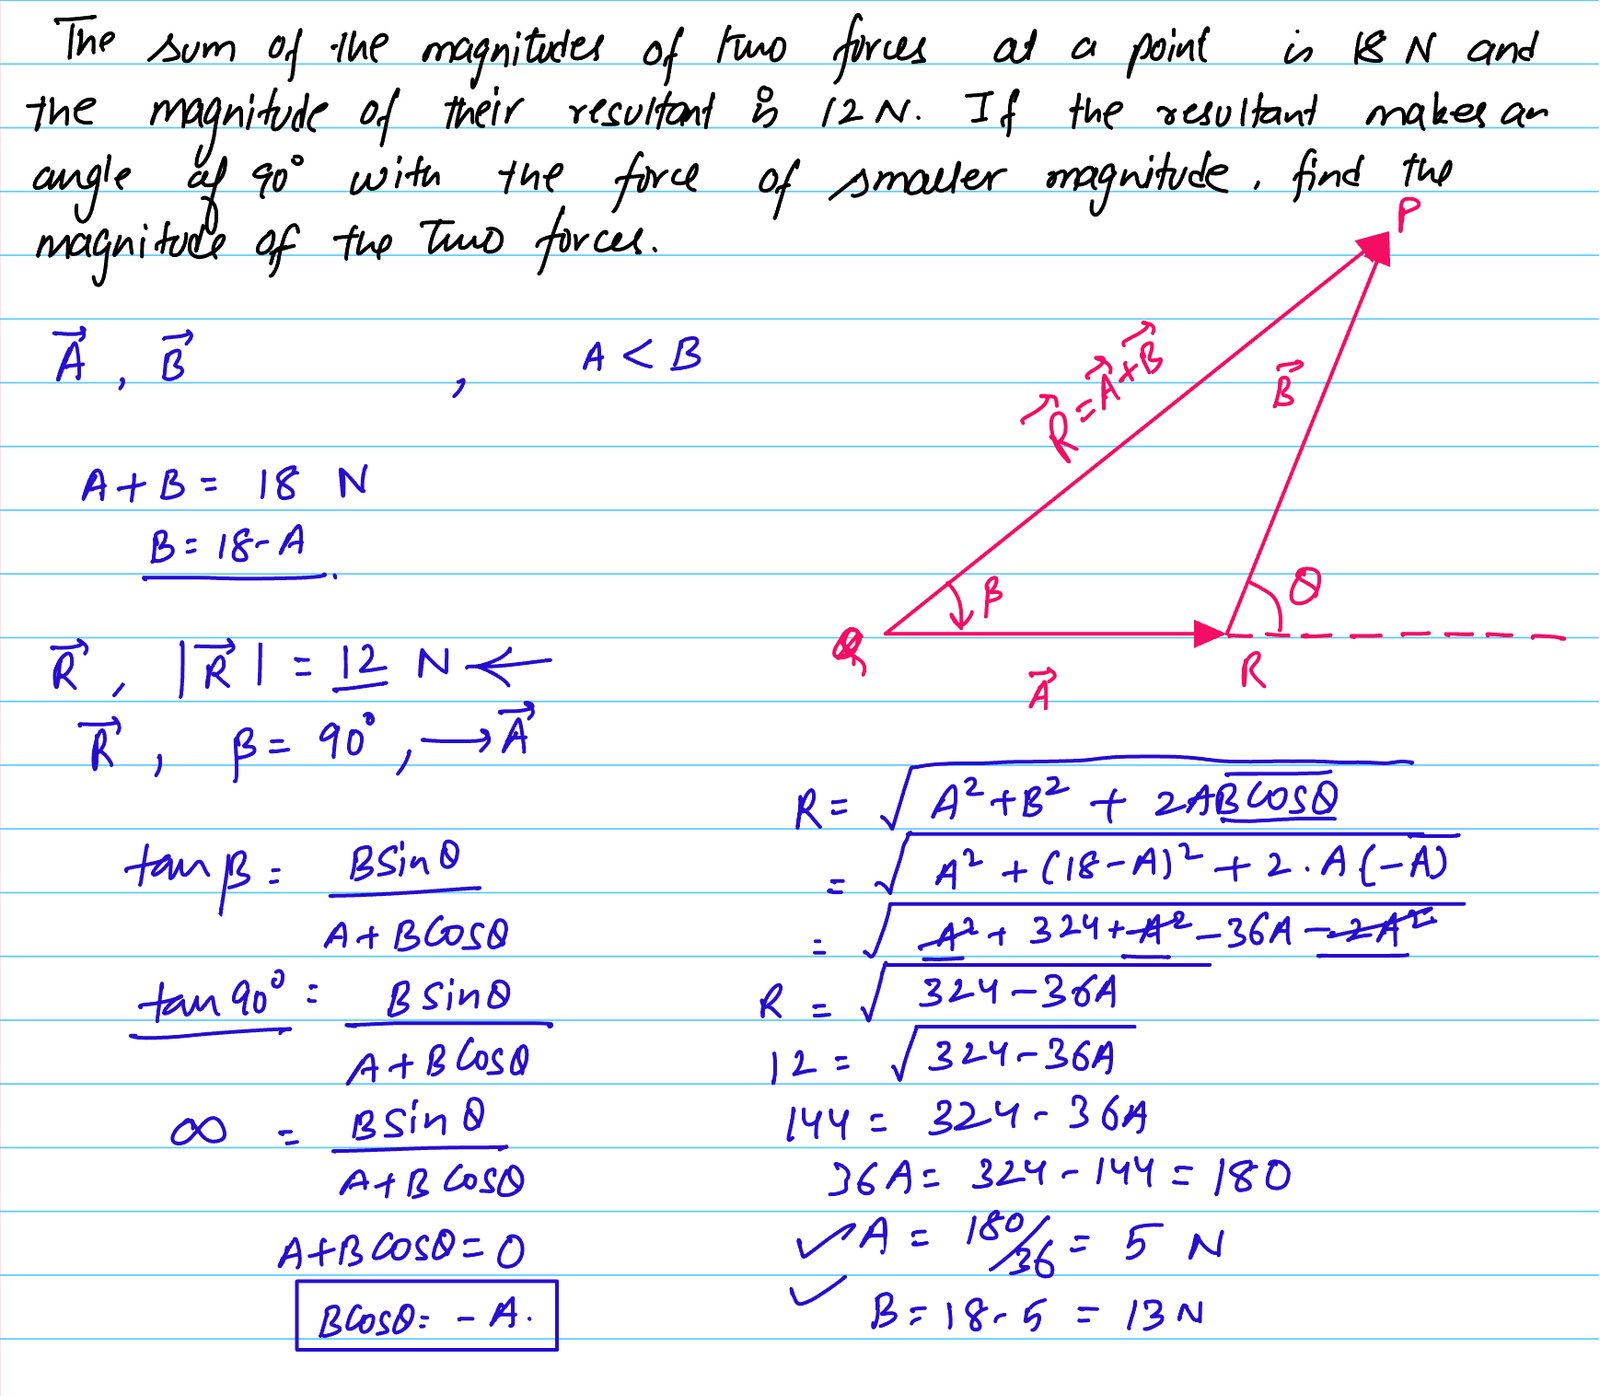 The sum of the magnitudes of two forces at a point is 18 N and
the magnitude of their resultant is 12 N. If the resultant makes an
angle of 90° with the force of smaller magnitude, find the
magnitude of the Two forces.
P
\vec{A}, \vec{B} , A < B
\vec{R} = \vec{A} + \vec{B}
\vec{B}
A + B = 18 N
B = 18 - A.
β
θ
Q
R
\vec{A}
\vec{R}, |\vec{R}| = 12 N ←
\vec{R}, β = 90°, → \vec{A}
tan β = B Sin θ / A + B Cos θ
tan 90° = B Sin θ / A + B Cos θ
∞ = B Sin θ / A + B Cos θ
A + B Cos θ = 0
B Cos θ = - A.
R = √(A² + B² + 2AB Cos θ)
= √(A² + (18 - A)² + 2 . A (-A))
= √(A² + 324 + A² - 36A - 2A²)
R = √(324 - 36A)
12 = √(324 - 36A)
144 = 324 - 36A
36A = 324 - 144 = 180
✓ A = 180/36 = 5 N
✓ B = 18 - 5 = 13 N